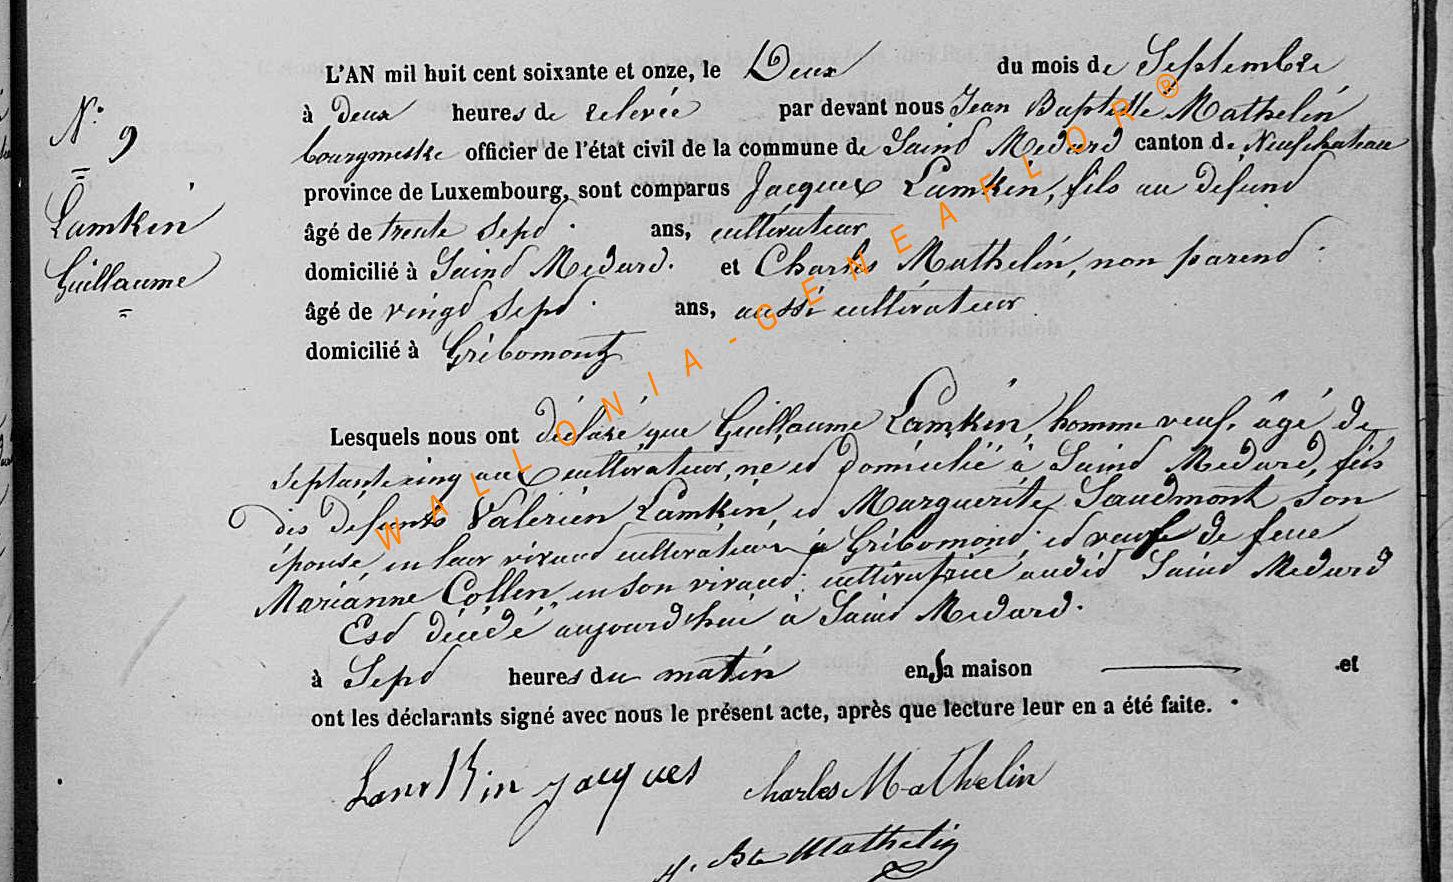 L'AN mil huit cent soixante et onze, le Deux du mois de Septembre
à deux heures de relevée par devant nous Jean Baptiste Mathelin
bourgmestre officier de l'état civil de la commune de Saind Medard canton de Neufchateau
province de Luxembourg, sont comparus Jacques Lamkin, fils au defund
âgé de trente Sepd ans, cultivateur
domicilié à Saind Medard. et Charles Mathelin, non parend
âgé de vingd Sepd ans, aussi cultivateur
domicilié à Gribomont
Lesquels nous ont déclaré que Guillaume Lamkin, homme veuf, âgé de
septante cinq ans cultivateur, né ed domicilié à Saind Medard, fils
des defunds Valérien Lamkin, ed Marguerite Saudmont son
épouse, en leur vivand cultivateurs à Gribomond; ed veuf de feue
Marianne Collin, en son vivand cultivatrice audid Saind Medard
Esd décédé aujourd'hui à Saind Medard.
à Sepd heures du matin en sa maison et
ont les déclarants signé avec nous le présent acte, après que lecture leur en a été faite.
Lamkin jacques charles Mathelin
J. Bte Mathelin
N° 9
Lamkin
Guillaume
WALLONIA-GENEAFLOR®